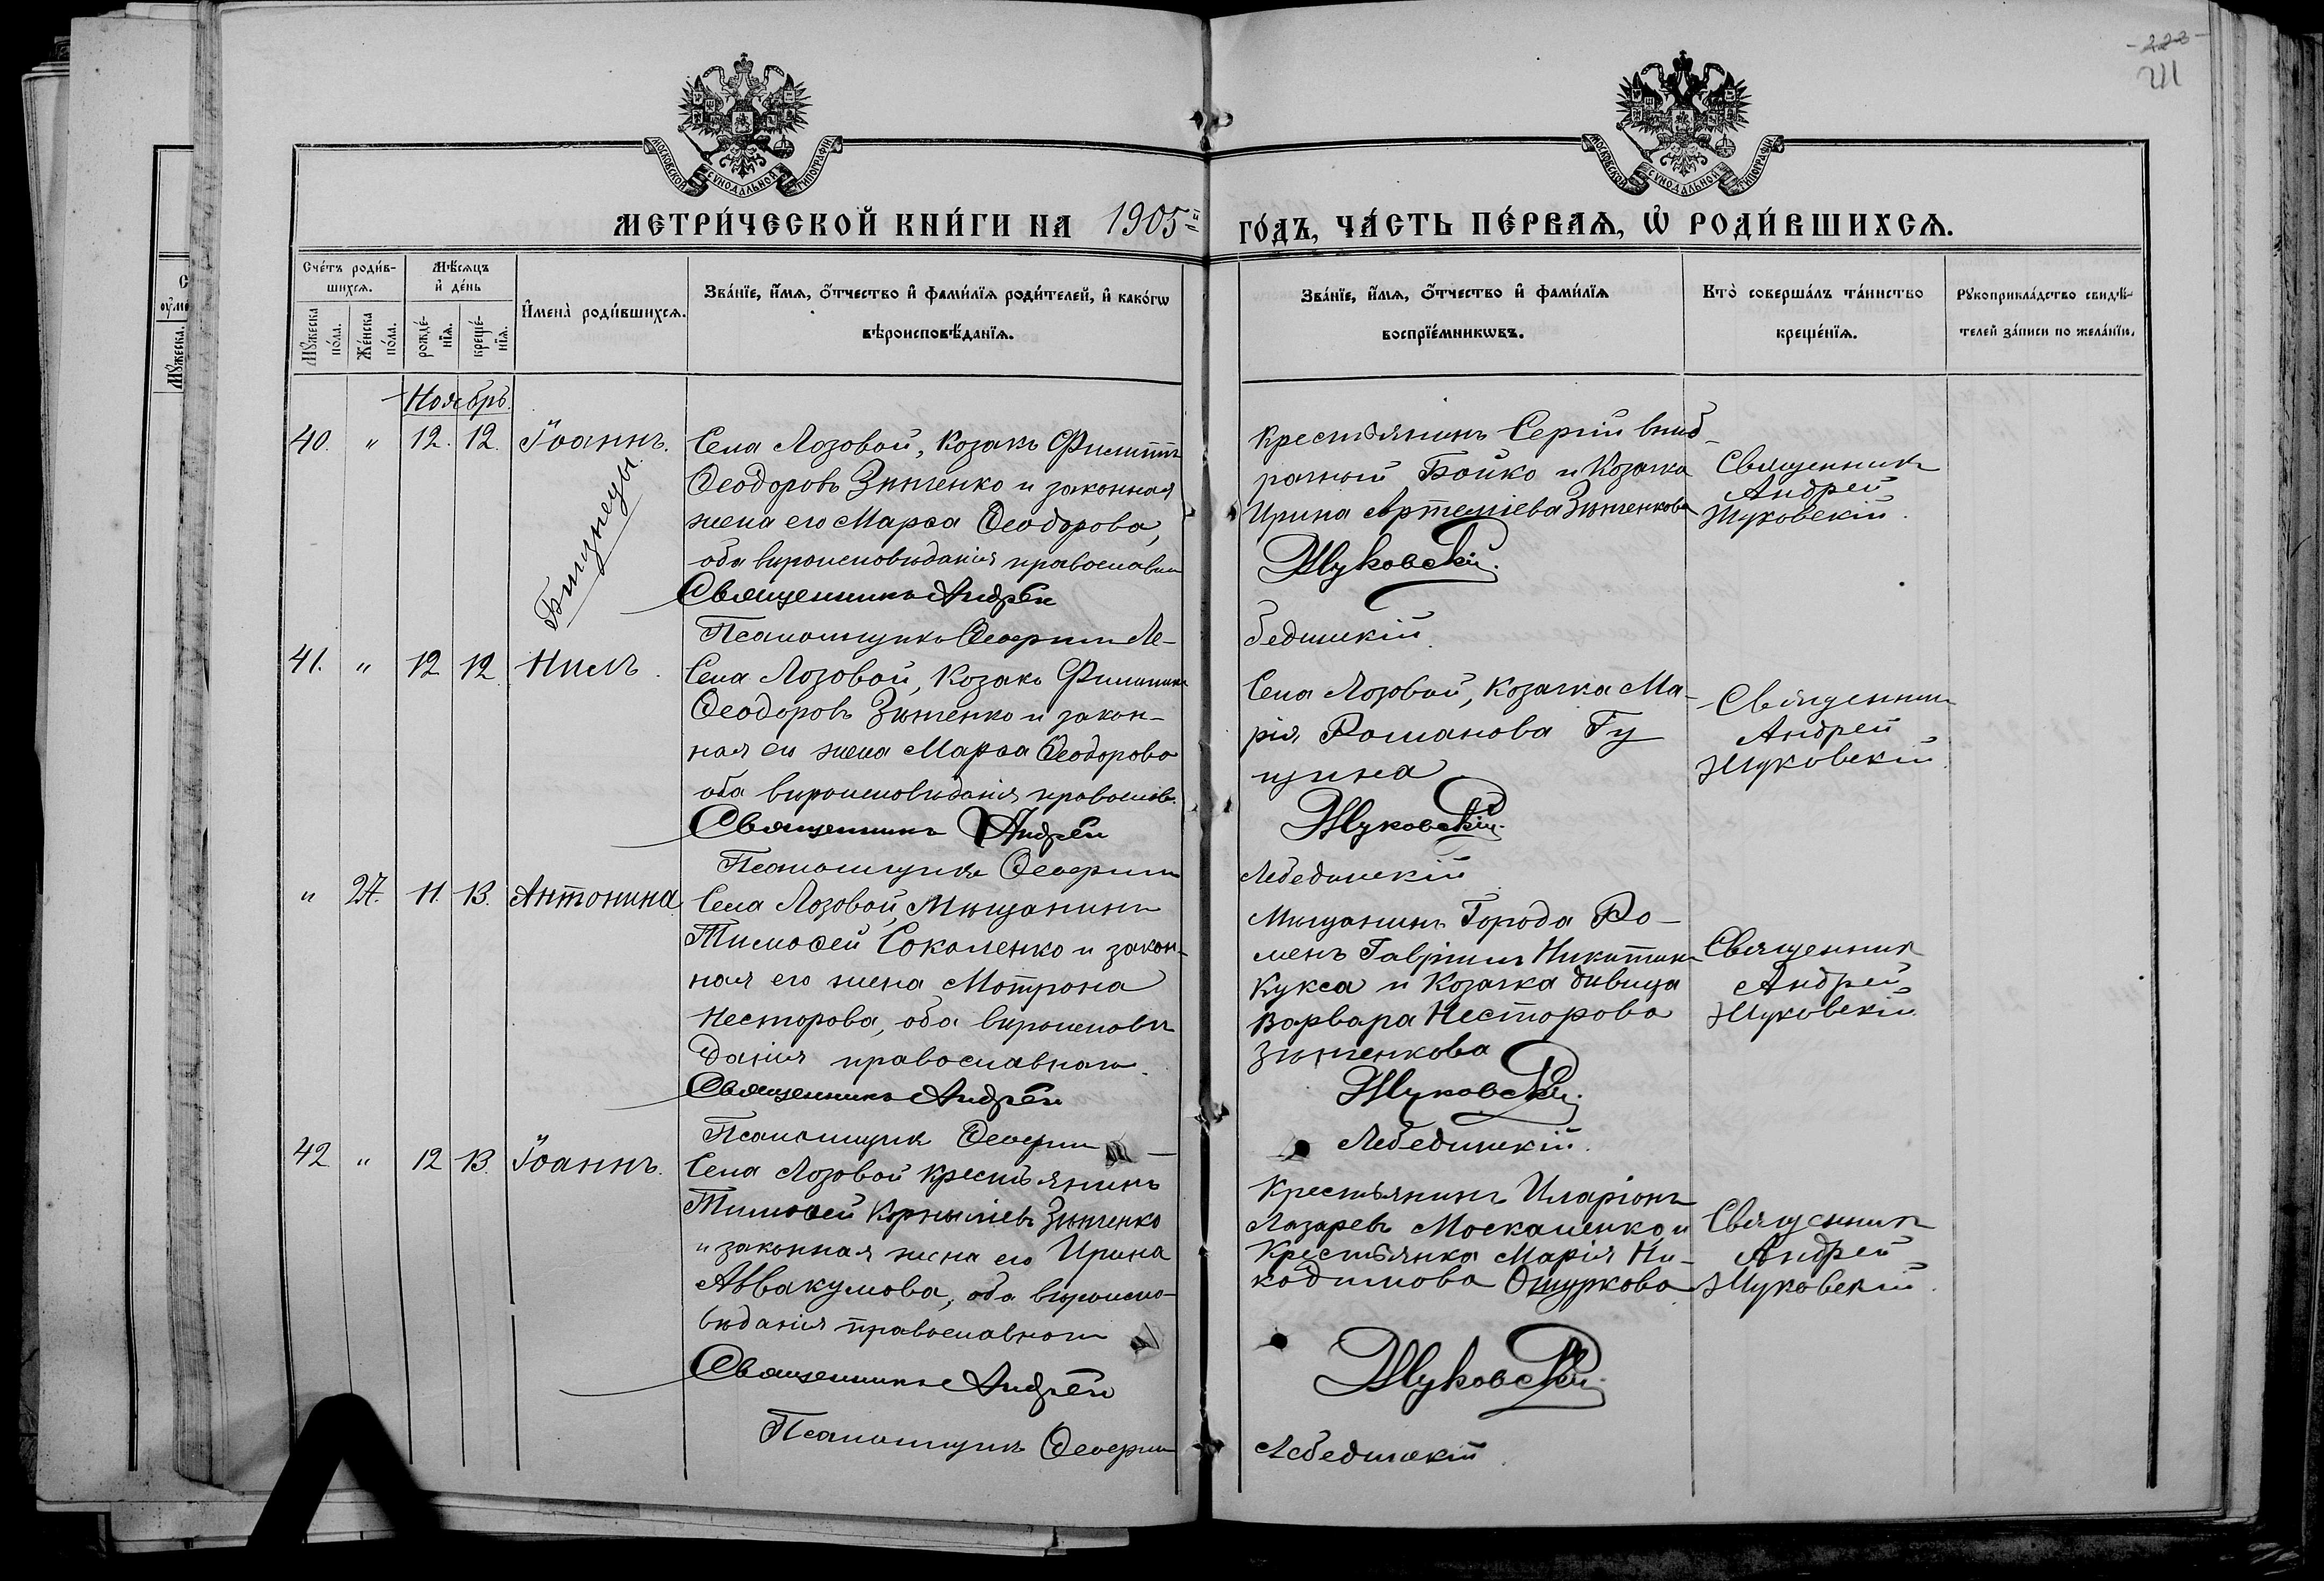 - 223 -
211
МОСКОВСКОЙ СѴНОДАЛЬНОЙ ТИПОГРАФІИ
МОСКОВСКОЙ СѴНОДАЛЬНОЙ ТИПОГРАФІИ
МЕТРИ́ЧЕСКОЙ КНИ́ГИ НА 1905й ГО́ДЪ, ЧА́СТЬ ПЕ́РВАѦ, Ѡ҆ РОДИ́ВШИХСѦ.
Сче́тъ роди́в-
шихсѧ.
Мꙋ́жеска по́ла.
Же́нска по́ла.
Мѣ́сѧцъ
и҆ де́нь
рожде́-
нїѧ.
креще́-
нїѧ.
И҆мена̀ роди́вшихсѧ.
Зва́нїе, и҆́мѧ, ѻ҆́тчество и҆ фами́лїѧ роди́телей, и҆ како́гѡ
вѣроисповѣ́данїѧ.
Зва́нїе, и҆́мѧ, ѻ҆́тчество и҆ фами́лїѧ
воспрїе́мникѡвъ.
Кто̀ соверша́лъ та́инство
креще́нїѧ.
Рꙋкоприкла́дство свидѣ́-
телей за́писи по жела́нїю.
Ноябрь.
40. " 12. 12. Іоаннъ.
Близнецы
Села Лозовой, Козакъ Филиппъ
Ѳеодоровъ Зѣнченко и законная
жена его Марѳа Ѳеодорова,
оба вѣроисповѣданія православн
Священникъ Андрей
Псаломщикъ Северин Ле-
Крестьянинъ Сергій внеб-
рачный Бойко и Козачка
Ирина Артеміева Зѣнченкова
Жуковскій.
бединскій.
Священникъ
Андрей
Жуковскій.
41. " 12 12. Нилъ.
Села Лозовой, Козакъ Филиппъ
Ѳеодоровъ Зѣнченко и закон-
ная его жена Марѳа Ѳеодорова
оба вѣроисповѣданія православ.
Священникъ Андрей
Псаломщикъ Северин
Села Лозовой, Козачка Ма-
рія Романова Гу
щина
Жуковскій.
Лебединскій
Священникъ
Андрей
Жуковскій.
" 27. 11. 13. Антонина.
Села Лозовой, Мѣщанинъ
Тимоѳей Соколенко и закон-
ная его жена Мотрона
Несторова, оба вѣроисповѣ
данія православнаго.
Священникъ Андрей
Псаломщик Северин
Мѣщанинъ Города Ро-
менъ Гавріилъ Никитинъ
Кукса и Козачка дѣвица
Варвара Несторова
Зѣнченкова
Жуковскій.
Лебединскій.
Священник
Андрей
Жуковскій.
42 " 12 13. Іоаннъ.
Села Лозовой Крестьянинъ
Тимоѳей Корниліевъ Зѣнченко
и законная жена его Ирина
Аввакумова, оба вѣроиспо-
вѣданія православнаго
Священникъ Андрей
Псаломщикъ Северин
Крестьянинъ Иларіонъ
Лазаревъ Москаленко, и
Крестьянка Марія Ни-
кодимова Ошуркова
Жуковскій.
Лебединскій.
Священникъ
Андрей
Жуковскій.